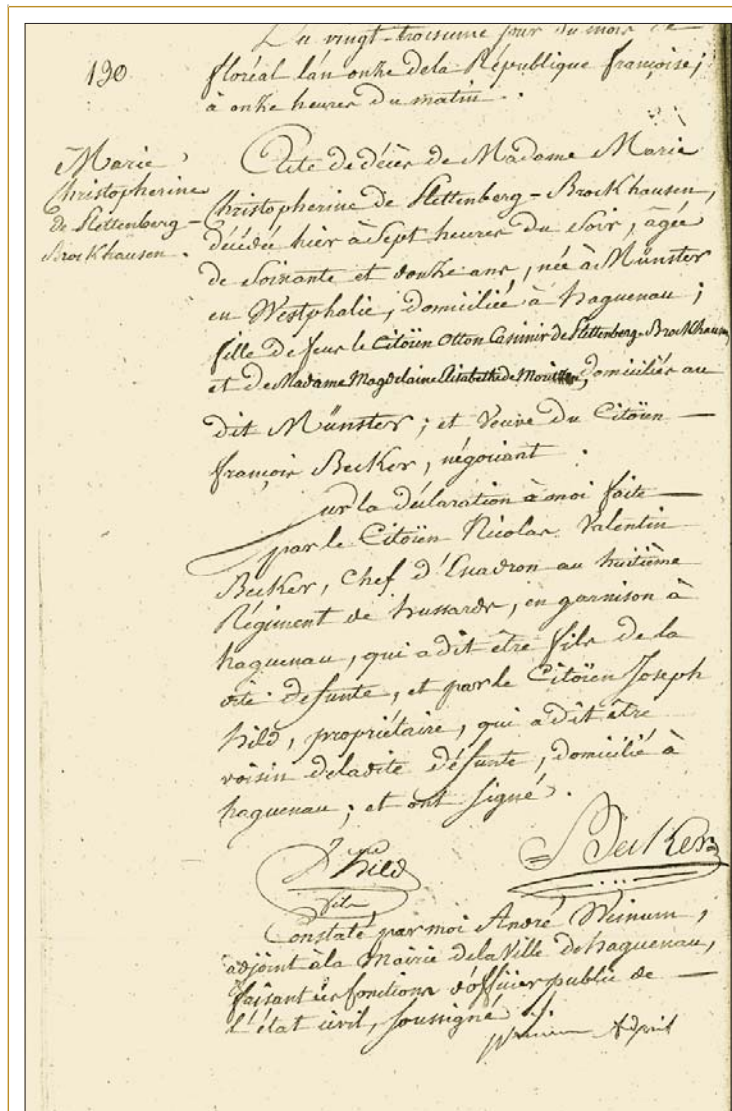 Du vingt-troisieme jour du mois de
130
floréal l'an onze de la République françoise,
à onze heures du matin.
Marie
Christopherine
de Plettenberg-
Brockhausen.
Acte de décès de Madame Marie
Christopherine de Plettenberg-Brockhausen,
décédée hier à Sept heures du Soir, agée
de Soixante et douze ans, née à Münster
en Westphalie, domiciliée à haguenau;
fille de feus le Citoïen Otton Casimir de Plettenberg-Brockhausen
et de Madame Magdelaine Elisabethe de domiciliés au
dit Münster; et Veuve du Citoïen
françois Becker, négociant.
Sur la déclaration à moi faite
par le Citoïen Nicolas Valentin
Becker, Chef d'Escadron au huitième
Régiment de hussards, en garnison à
haguenau, qui a dit être fils de la
dite defunte, et par le Citoïen Joseph
hild, propriétaire, qui a dit être
voisin de la dite défunte, domicilié à
haguenau; et ont signé.
hild
Becker
Constaté par moi André Weinum,
adjoint à la Mairie de la Ville de haguenau,
faisant les fonctions d'officier public de
l'état civil, soussigné.
Weinum